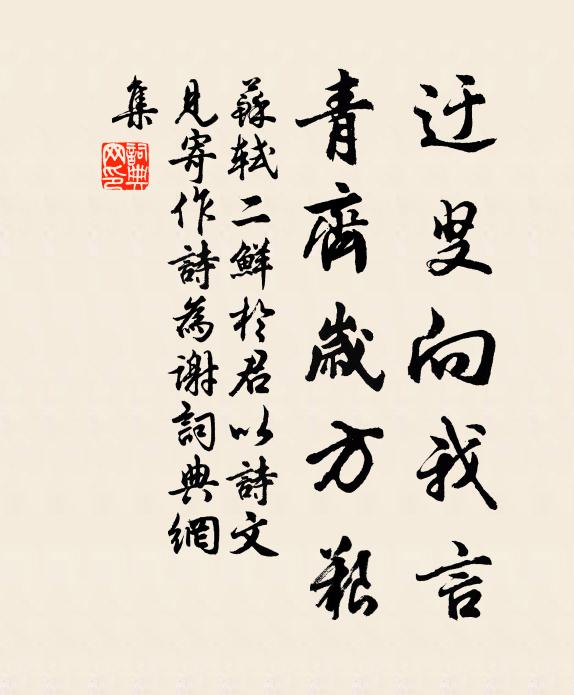 迂叟向我言
青齊歲方艱
蘇軾二鮮於君以詩文
見寄作詩為謝詞典網
集
詞典網印